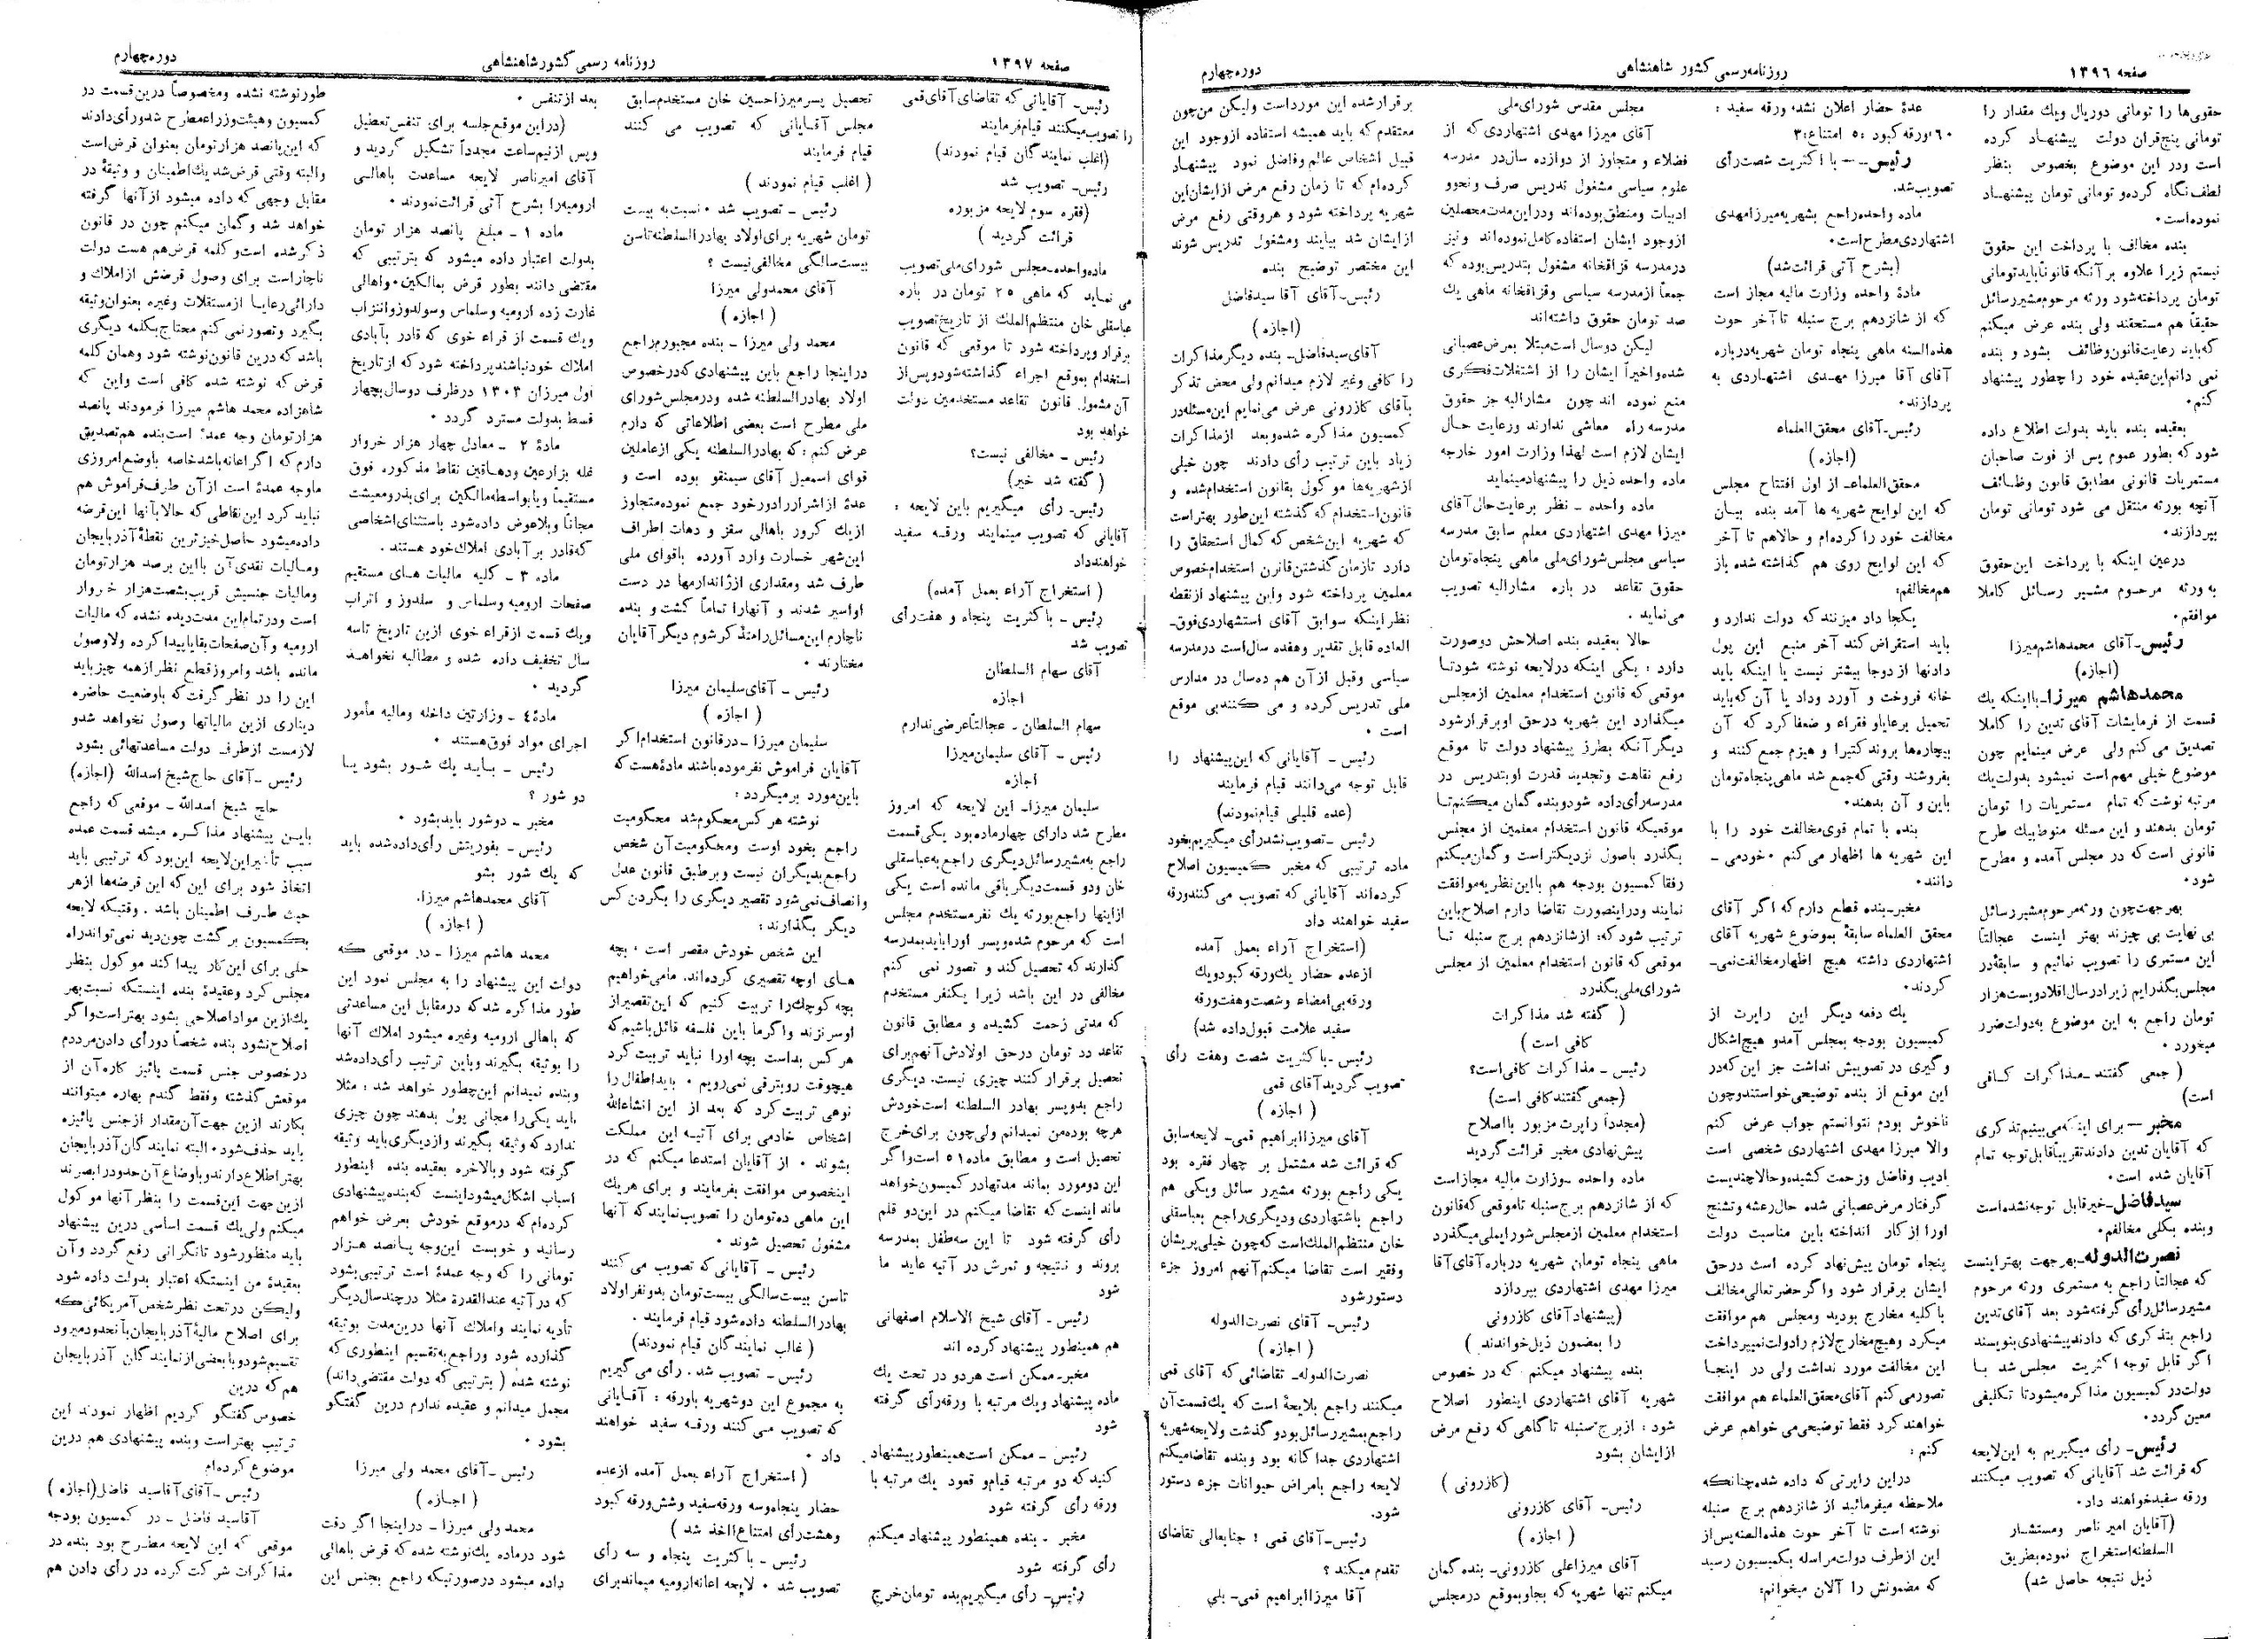 صفحه ۱۳۹۶
روزنامه رسمی کشور شاهنشاهی
دوره چهارم
حقوقی‌ها را تومانی دوریال ویك مقدار را
تومانی پنج قران دولت پیشنهاد کرده
است ودر این موضوع بخصوص بنظر
لطف نگاه کرده و تومانی تومان پیشنهاد
نموده است.
بنده مخالف با پرداخت این حقوق
نیستم زیرا علاوه بر آنکه قانوناً باید تومانی
تومان پرداخته شود ورثه مرحوم مشیر رسائل
حقیقاً هم مستحقند ولی بنده عرض میکنم
که باید رعایت قانون وظائف بشود و بنده
نمی دانم این عقیده خود را چطور پیشنهاد
کنم.
بعقیده بنده باید بدولت اطلاع داده
شود که بطور عموم پس از فوت صاحبان
مستمریات قانونی مطابق قانون وظائف
آنچه بورثه منتقل می شود تومانی تومان
بپردازند.
درعین اینکه با پرداخت این حقوق
به ورثه مرحوم مشیر رسائل کاملا
موافقم.
رئیس ـ آقای محمدهاشم میرزا
(اجازه)
محمدهاشم میرزا ـ با اینکه یك
قسمت از فرمایشات آقای تدین را کاملا
تصدیق می کنم ولی عرض مینمایم چون
موضوع خیلی مهم است نمیشود بدولت یك
مرتبه نوشت که تمام مستمریات را تومان
تومان بدهند و این مسئله منوط بیك طرح
قانونی است که در مجلس آمده و مطرح
شود.
بهر جهت چون ورثه مرحوم مشیر رسائل
بی نهایت بی چیزند بهتر اینست عجالتاً
این مستمری را تصویب نمائیم و سابقه در
مجلس بگذرایم زیرا در سال اقلا دویست هزار
تومان راجع به این موضوع به دولت ضرر
میخورد.
( جمعی گفتند ـ مذاکرات کافی
است)
مخبر ـ برای اینکه می بینیم تذکری
که آقایان تدین دادند تقریباً قابل توجه تمام
آقایان شده است.
سید فاضل ـ خیر قابل توجه نشده است
و بنده بکلی مخالفم.
نصرت الدوله ـ بهر جهت بهتر اینست
که عجالتاً راجع به مستمری ورثه مرحوم
مشیر رسائل رأی گرفته شود بعد آقای تدین
راجع بتذکری که دادند پیشنهادی بنویسند
اگر قابل توجه اکثریت مجلس شد با
دولت در کمیسیون مذاکره میشود تا تکلیفی
معین گردد.
رئیس ـ رأی میگیریم به این لایحه
که قرائت شد آقایانی که تصویب میکنند
ورقه سفید خواهند داد.
(آقایان امیر ناصر ومستشار
السلطنه استخراج نموده بطریق
ذیل نتیجه حاصل شد)
عدۀ حضار اعلان نشده ورقه سفید :
۶۰ ورقه کبود :۵ امتناع:۳
رئیس ـ با اکثریت شصت رأی
تصویب شد.
ماده واحده راجع بشهریه میرزا مهدی
اشتهاردی مطرح است.
(بشرح آتی قرائت شد)
مادۀ واحده وزارت مالیه مجاز است
که از شانزدهم برج سنبله تا آخر حوت
هذه السنه ماهی پنجاه تومان شهریه درباره
آقای آقا میرزا مهدی اشتهاردی به
پردازند.
رئیس ـ آقای محقق العلماء
(اجازه)
محقق العلماء ـ از اول افتتاح مجلس
که این لوایح شهریه ها آمد بنده بیان
مخالفت خود را کرده ام و حالا هم تا آخر
که این لوایح روی هم گذاشته شده باز
هم مخالفم:
یکجا داد میزنند که دولت ندارد و
باید استقراض کند آخر منبع این پول
دادنها از دوجا بیشتر نیست یا اینکه باید
خانه فروخت و آورد وداد یا آن که باید
تحمیل برعایا و فقراء و ضعفا کرد که آن
بیچاره‌ها بروند کتیرا و هیزم جمع کنند و
بفروشند وقتی که جمع شد ماهی پنجاه تومان
باین و آن بدهند.
بنده با تمام قوی مخالفت خود را با
این شهریه ها اظهار می کنم . خود می ـ
دانند.
مخبر ـ بنده قطع دارم که اگر آقای
محقق العلماء سابقۀ بموضوع شهریه آقای
اشتهاردی داشته هیچ اظهار مخالفت نمی ـ
کردند.
یك دفعه دیگر این راپرت از
کمیسیون بودجه بمجلس آمد و هیچ اشکال
و گیری در تصویبش نداشت جز این که در
این موقع از بنده توضیحی خواستند و چون
ناخوش بودم نتوانستم جواب عرض کنم
والا میرزا مهدی اشتهاردی شخصی است
ادیب وفاضل وزحمت کشیده وحالا چندیست
گرفتار مرض عصبانی شده حال رعشه وتشنج
اورا از کار انداخته باین مناسبت دولت
پنجاه تومان پیش نهاد کرده است در حق
ایشان برقرار شود واگر حضرتعالی مخالف
با کلیه مخارج بودید ومجلس هم موافقت
میکرد وهیچ مخارج لازم را دولت نمیپرداخت
این مخالفت مورد نداشت ولی در اینجا
تصور می کنم آقای محقق العلماء هم موافقت
خواهند کرد فقط توضیحی می خواهم عرض
کنم :
در این راپرتی که داده شده چنانکه
ملاحظه میفرمائید از شانزدهم برج سنبله
نوشته است تا آخر حوت هذه السنه پس از
این از طرف دولت مراسله بکمیسیون رسید
که مضمونش را آلان میخوانم:
مجلس مقدس شورای ملی
آقای میرزا مهدی اشتهاردی که از
فضلاء و متجاوز از دوازده سال در مدرسه
علوم سیاسی مشغول تدریس صرف و نحو و
ادبیات ومنطق بوده اند ودر این مدت محصلین
از وجود ایشان استفاده کامل نموده اند و نیز
در مدرسه قزاقخانه مشغول بتدریس بوده که
جمعاً از مدرسه سیاسی و قزاقخانه ماهی یك
صد تومان حقوق داشته اند
لیکن دوسال است مبتلا بمرض عصبانی
شده واخیراً ایشان را از اشتغلات فکری
منع نموده اند چون مشارالیه جز حقوق
مدرسه راه معاشی ندارند ورعایت حال
ایشان لازم است لهذا وزارت امور خارجه
ماده واحده ذیل را پیشنهاد مینماید
ماده واحده ـ نظر برعایت حال آقای
میرزا مهدی اشتهاردی معلم سابق مدرسه
سیاسی مجلس شورای ملی ماهی پنجاه تومان
حقوق تقاعد در باره مشارالیه تصویب
می نماید .
حالا بعقیده بنده اصلاحش دوصورت
دارد : یکی اینکه در لایحه نوشته شود تا
موقعی که قانون استخدام معلمین از مجلس
میگذارد این شهریه در حق او برقرار شود
دیگر آنکه بطرز پیشنهاد دولت تا موقع
رفع نقاهت وتجدید قدرت او بتدریس در
مدرسه رأی داده شود و بنده گمان میکنم تا
موقعیکه قانون استخدام معلمین از مجلس
بگذرد باصول نزدیکتر است و گمان میکنم
رفقا کمسیون بودجه هم با این نظریه موافقت
نمایند ودر اینصورت تقاضا دارم اصلاح باین
ترتیب شود که: از شانزدهم برج سنبله تا
موقعی که قانون استخدام معلمین از مجلس
شورای ملی بگذرد
( گفته شد مذاکرات
کافی است )
رئیس ـ مذاکرات کافی است؟
(جمعی گفتند کافی است)
(مجدداً راپرت مزبور با اصلاح
پیش نهادی مخبر قرائت گردید
ماده واحده ـ وزارت مالیه مجاز است
که از شانزدهم برج سنبله تا موقعی که قانون
استخدام معلمین از مجلس شورایملی میگذرد
ماهی پنجاه تومان شهریه درباره آقای آقا
میرزا مهدی اشتهاردی بپردازد
(پیشنهاد آقای کازرونی
را بمضمون ذیل خواندند )
بنده پیشنهاد میکنم که در خصوص
شهریه آقای اشتهاردی اینطور اصلاح
شود : از برج سنبله تا گاهی که رفع مرض
از ایشان بشود
(کازرونی )
رئیس ـ آقای کازرونی
( اجازه )
آقای میرزا علی کازرونی ـ بنده گمان
میکنم تنها شهریه که بجا و بموقع در مجلس
برقرار شده این مورد است ولیکن من چون
معتقدم که باید همیشه استفاده از وجود این
قبیل اشخاص عالم و فاضل نمود پیشنهاد
کرده ام که تا زمان رفع مرض از ایشان این
شهریه پرداخته شود و هروقتی رفع مرض
از ایشان شد بیایند ومشغول تدریس شوند
این مختصر توضیح بنده
رئیس ـ آقای آقا سید فاضل
(اجازه )
آقای سید فاضل ـ بنده دیگر مذاکرات
را کافی وغیر لازم میدانم ولی محض تذکر
بآقای کازرونی عرض می نمایم این مسئله در
کمسیون مذاکره شده و بعد از مذاکرات
زیاد باین ترتیب رأی دادند چون خیلی
از شهریه‌ها موکول بقانون استخدام شده و
قانون استخدام که گذشته این طور بهتر است
که شهریه این شخص که کمال استحقاق را
دارد تا زمان گذشتن قانون استخدام خصوص
معلمین پرداخته شود و این پیشنهاد از نقطه
نظر اینکه سوابق آقای استشهاردی فوق ـ
العاده قابل تقدیر وهفده سال است در مدرسه
سیاسی وقبل از آن هم ده سال در مدارس
ملی تدریس کرده و می کنند بی موقع
است .
رئیس ـ آقایانی که این پیشنهاد را
قابل توجه می‌دانند قیام فرمایند
(عده قلیلی قیام نمودند)
رئیس ـ تصویب نشد رأی میگیریم بخود
ماده ترتیبی که مخبر کمیسیون اصلاح
کرده اند آقایانی که تصویب می کنند ورقه
سفید خواهند داد
(استخراج آراء بعمل آمده
از عده حضار یك ورقه کبود و یك
ورقه بی امضاء وشصت و هفت ورقه
سفید علامت قبول داده شد)
رئیس ـ با کثریت شصت وهفت رأی
تصویب گردید آقای قمی
( اجازه )
آقای میرزا ابراهیم قمی ـ لایحه سابق
که قرائت شد مشتمل بر چهار فقره بود
یکی راجع بورثه مشیر رسائل ویکی هم
راجع باشتهاردی و دیگری راجع بعباسقلی
خان منتظم الملك است که چون خیلی پریشان
وفقیر است تقاضا میکنم آنهم امروز جزء
دستور شود
رئیس ـ آقای نصرت الدوله
( اجازه )
نصرت الدوله ـ تقاضائی که آقای قمی
میکنند راجع بلایحۀ است که یك قسمت آن
راجع بمشیر رسائل بود و گذشت ولایحه شهریه
اشتهاردی جداگانه بود وبنده تقاضا میکنم
لایحه راجع بامراض حیوانات جزء دستور
شود.
رئیس ـ آقای قمی ! جنابعالی تقاضای
تقدم میکنند ؟
آقا میرزا ابراهیم قمی ـ بلی
صفحه ۱۳۹۷
روزنامه رسمی کشور شاهنشاهی
دوره چهارم
رئیس ـ آقایانی که تقاضای آقای قمی
را تصویب میکنند قیام فرمایند
(اغلب نمایندگان قیام نمودند)
رئیس ـ تصویب شد
(فقره سوم لایحه مزبوره
قرائت گردید )
ماده واحده ـ مجلس شورای ملی تصویب
می نماید که ماهی ۲۵ تومان در باره
عباسقلی خان منتظم الملك از تاریخ تصویب
برقرار و پرداخته شود تا موقعی که قانون
استخدام بموقع اجراء گذاشته شود و پس از
آن مشمول قانون تقاعد مستخدمین دولت
خواهد بود
رئیس ـ مخالفی نیست؟
( گفته شد خیر)
رئیس ـ رأی میگیریم باین لایحه :
آقایانی که تصویب مینمایند ورقه سفید
خواهند داد
( استخراج آراء بعمل آمده)
رئیس ـ با کثریت پنجاه و هفت رأی
تصویب شد
آقای سهام السلطان
اجازه
سهام السلطان ـ عجالتاً عرضی ندارم
رئیس ـ آقای سلیمان میرزا
اجازه
سلیمان میرزا ـ این لایحه که امروز
مطرح شد دارای چهار ماده بود یکی قسمت
راجع به مشیر رسائل دیگری راجع به عباسقلی
خان ودو قسمت دیگر باقی مانده است یکی
از اینها راجع بورثه یك نفر مستخدم مجلس
است که مرحوم شده و پسر او را باید بمدرسه
گذارند که تحصیل کند و تصور نمی کنم
مخالفی در این باشد زیرا یکنفر مستخدم
که مدتی زحمت کشیده و مطابق قانون
تقاعد دد تومان در حق اولادش آنهم برای
تحصیل برقرار کنند چیزی نیست. دیگری
راجع بدو پسر بهادر السلطنه است خودش
هرچه بوده من نمیدانم ولی چون برای خرج
تحصیل است و مطابق ماده ۵۱ است واگر
این دو مورد بماند مدتها در کمسیون خواهد
ماند اینست که تقاضا میکنم در این دو قلم
رأی گرفته شود تا این سه طفل بمدرسه
بروند و نتیجه و ثمرش در آتیه عاید ما
شود
رئیس ـ آقای شیخ الاسلام اصفهانی
هم همینطور پیشنهاد کرده اند
مخبر ـ ممکن است هر دو در تحت یك
ماده پیشنهاد ویك مرتبه با ورقه رأی گرفته
شود
رئیس ـ ممکن است همینطور پیشنهاد
کنید که دو مرتبه قیام و قعود یك مرتبه با
ورقه رأی گرفته شود
مخبر ـ بنده همینطور پیشنهاد میکنم
رأی گرفته شود
رئیس ـ رأی میگیریم بده تومان خرج
تحصیل پسر میرزا حسین خان مستخدم سابق
مجلس آقایانی که تصویب می کنند
قیام فرمایند
( اغلب قیام نمودند )
رئیس ـ تصویب شد . نسبت به بیست
تومان شهریه برای اولاد بهادر السلطنه تا سن
بیست سالگی مخالفی نیست ؟
آقای محمد ولی میرزا
( اجازه )
محمد ولی میرزا ـ بنده مجبورم راجع
در اینجا راجع باین پیشنهادی که در خصوص
اولاد بهادر السلطنه شده ودر مجلس شورای
ملی مطرح است بعضی اطلاعاتی که دارم
عرض کنم : که بهادر السلطنه یکی از عاملین
قوای اسمعیل آقای سیمتقو بوده است و
عدۀ از اشرار را دور خود جمع نموده متجاوز
از یك کرور باهالی سقز و دهات اطراف
این شهر خسارت وارد آورده با قوای ملی
طرف شد ومقداری از ژاندارمها در دست
او اسیر شدند و آنها را تماماً کشت و بنده
ناچارم این مسائل را متذکر شوم دیگر آقایان
مختارند .
رئیس ـ آقای سلیمان میرزا
( اجازه )
سلیمان میرزا ـ در قانون استخدام اگر
آقایان فراموش نفرموده باشند مادۀ هست که
باین مورد برمیگردد :
نوشته هر کس محکوم شد محکومیت
راجع بخود اوست ومحکومیت آن شخص
راجع بدیگران نیست و بر طبق قانون عدل
وانصاف نمی شود تقصیر دیگری را بگردن کس
دیگر بگذارند :
این شخص خودش مقصر است . بچه
های اوچه تقصیری کرده اند. ما می خواهیم
بچه کوچك را تربیت کنیم که این تقصیر از
او سر نزند واگر ما باین فلسفه قائل باشیم که
هر کس بد است بچه اورا نباید تربیت کرد
هیچوقت روبترقی نمی رویم . باید اطفال را
نوعی تربیت کرد که بعد از این انشاءالله
اشخاص خادمی برای آتیه این مملکت
بشوند . از آقایان استدعا میکنم که در
اینخصوص موافقت بفرمایند و برای هر یك
این ماهی ده تومان را تصویب نمایند که آنها
مشغول تحصیل شوند .
رئیس ـ آقایانی که تصویب می کنند
تا سن بیست سالگی بیست تومان بدو نفر اولاد
بهادر السلطنه داده شود قیام فرمایند .
( غالب نمایندگان قیام نمودند)
رئیس ـ تصویب شد . رأی می گیریم
به مجموع این دو شهریه با ورقه : آقایانی
که تصویب می کنند ورقه سفید خواهند
داد .
( استخراج آراء بعمل آمده از عده
حضار پنجاه وسه ورقه سفید وشش ورقه کبود
وهشت رأی امتناع اخذ شد )
رئیس ـ با کثریت پنجاه و سه رأی
تصویب شد . لایحه اعانه ارومیه میماند برای
بعد از تنفس .
(در این موقع جلسه برای تنفس تعطیل
وپس از نیم ساعت مجدداً تشکیل گردید و
آقای امیر ناصر لایحه مساعدت باهالی
ارومیه را بشرح آتی قرائت نمودند .
ماده ۱ ـ مبلغ پانصد هزار تومان
بدولت اعتبار داده میشود که بترتیبی که
مقتضی دانند بطور قرض بمالکین . واهالی
غارت زده ارومیه وسلماس وسولدوز وانتزاب
ویك قسمت از قراء خوی که قادر بآبادی
املاك خود نباشند پرداخته شود که از تاریخ
اول میزان ۱۳۰۳ در ظرف دو سال بچهار
قسط بدولت مسترد گردد .
مادۀ ۲ ـ معادل چهار هزار خروار
غله بزارعین ودهاقین نقاط مذکوره فوق
مستقیماً ویا بواسطه مالکین برای بذر ومعیشت
مجاناً و بلاعوض داده شود باستثنای اشخاصی
که قادر بر آبادی املاك خود هستند .
ماده ۳ ـ کلیه مالیات های مستقیم
صفحات ارومیه وسلماس و سلدوز و اتراب
ویك قسمت از قراء خوی ازین تاریخ تا سه
سال تخفیف داده شده و مطالبه نخواهد
گردید .
مادۀ ٤ ـ وزارتین داخله ومالیه مأمور
اجرای مواد فوق هستند .
رئیس ـ باید یك شور بشود یا
دو شور ؟
مخبر ـ دو شور باید بشود .
رئیس ـ بفوریتش رأی داده شده باید
که یك شور بشو
آقای محمد هاشم میرزا.
( اجازه )
محمد هاشم میرزا ـ در موقعی که
دولت این پیشنهاد را به مجلس نمود این
طور مذاکره شد که در مقابل این مساعدتی
که باهالی ارومیه وغیره میشود املاك آنها
را بوثیقه بگیرند وباین ترتیب رأی داده شد
وبنده نمیدانم این چطور خواهد شد : مثلا
باید یکی را مجانی پول بدهند چون چیزی
ندارد که وثیقه بگیرند و از دیگری باید وثیقه
گرفته شود وبالاخره بعقیده بنده اینطور
اسباب اشکال میشود اینست که بنده پیشنهادی
کرده ام که در موقع خودش بعرض خواهم
رسانید و خوبست این وجه پانصد هزار
تومانی را که وجه عمدۀ است ترتیبی بشود
که در آتیه عندالقدرة مثلا در چند سال دیگر
تأدیه نمایند واملاك آنها درین مدت بوثیقه
گذارده شود وراجع به تقسیم اینطوری که
نوشته شده ( بترتیبی که دولت مقتضی داند)
مجمل میدانم و عقیده ندارم درین گفتگو
بشود .
رئیس ـ آقای محمد ولی میرزا
( اجازه )
محمد ولی میرزا ـ در اینجا اگر دقت
شود در ماده یك نوشته شده که قرض باهالی
داده میشود در صورتیکه راجع بجنس این
طور نوشته نشده ومخصوصاً درین قسمت در
کمسیون وهیئت وزراء مطرح شد ورأی دادند
که این پانصد هزار تومان بعنوان قرض است
والبته وقتی قرض شد یك اطمینان و وثیقۀ در
مقابل وجهی که داده میشود از آنها گرفته
خواهد شد و گمان میکنم چون در قانون
ذکر شده است و کلمه قرض هم هست دولت
ناچار است برای وصول قرضش از املاك و
دارائی رعایا از مستقلات وغیره بعنوان وثیقه
بگیرد وتصور نمی کنم محتاج بکلمه دیگری
باشد که درین قانون نوشته شود وهمان کلمه
قرض که نوشته شده کافی است واین که
شاهزاده محمد هاشم میرزا فرمودند پانصد
هزار تومان وجه عمدۀ است بنده هم تصدیق
دارم که اگر اعانه باشد خاصه با وضع امروزی
ما وجه عمدۀ است از آن طرف فراموش هم
نباید کرد این نقاطی که حالا بآنها این قرضه
داده میشود حاصل خیز ترین نقطۀ آذربایجان
ومالیات نقدی آن بالین بر صد هزار تومان
ومالیات جنسیش قریب بشصت هزار خروار
است ودر تمام این مدت دیده نشده که مالیات
ارومیه و آن صفحات بقایا پیدا کرده ولاوصول
مانده باشد وامروز قطع نظر از همه چیز باید
این را در نظر گرفت که با وضعیت حاضره
دیناری ازین مالیاتها وصول نخواهد شد و
لازمست از طرف دولت مساعدتهائی بشود
رئیس ـ آقای حاج شیخ اسدالله (اجازه)
حاج شیخ اسدالله ـ موقعی که راجع
باین پیشنهاد مذاکره میشد قسمت عمده
سبب تأخیر این لایحه این بود که ترتیبی باید
اتخاذ شود برای این که این قرضه‌ها از هر
حیث طرف اطمینان باشد . وقتیکه لایحه
بکمسیون برگشت چون دید نمی تواند راه
حلی برای این کار پیدا کند موکول بنظر
مجلس کرد وعقیدۀ بنده اینستکه نسبت بهر
یك ازین مواد اصلاحی بشود بهتر است واگر
اصلاح نشود بنده شخصاً در رأی دادن مرددم
در خصوص جنس قسمت پائیز کاره آن از
موقعش گذشته وفقط گندم بهاره میتوانند
بکارند ازین جهت آن مقدار از جنس پائیزه
باید حذف شود . البته نمایندگان آذربایجان
بهتر اطلاع دارند و باوضاع آن حدود را بصرند
ازین جهت این قسمت را بنظر آنها موکول
میکنم ولی یك قسمت اساسی درین پیشنهاد
باید منظور شود تا نگرانی رفع گردد و آن
بعقیدۀ من اینستکه اعتبار بدولت داده شود
ولیکن در تحت نظر شخص آمریکائی که
برای اصلاح مالیۀ آذربایجان بآنحدود میرود
تقسیم شود و با بعضی از نمایندگان آذربایجان
هم که درین
خصوص گفتگو کردیم اظهار نمودند این
ترتیب بهتر است وبنده پیشنهادی هم درین
موضوع کرده ام
رئیس ـ آقای آقا سید فاضل (اجازه )
آقا سید فاضل ـ در کمسیون بودجه
موقعی که این لایحه مطرح بود بنده در
مذاکرات شرکت کرده در رأی دادن هم